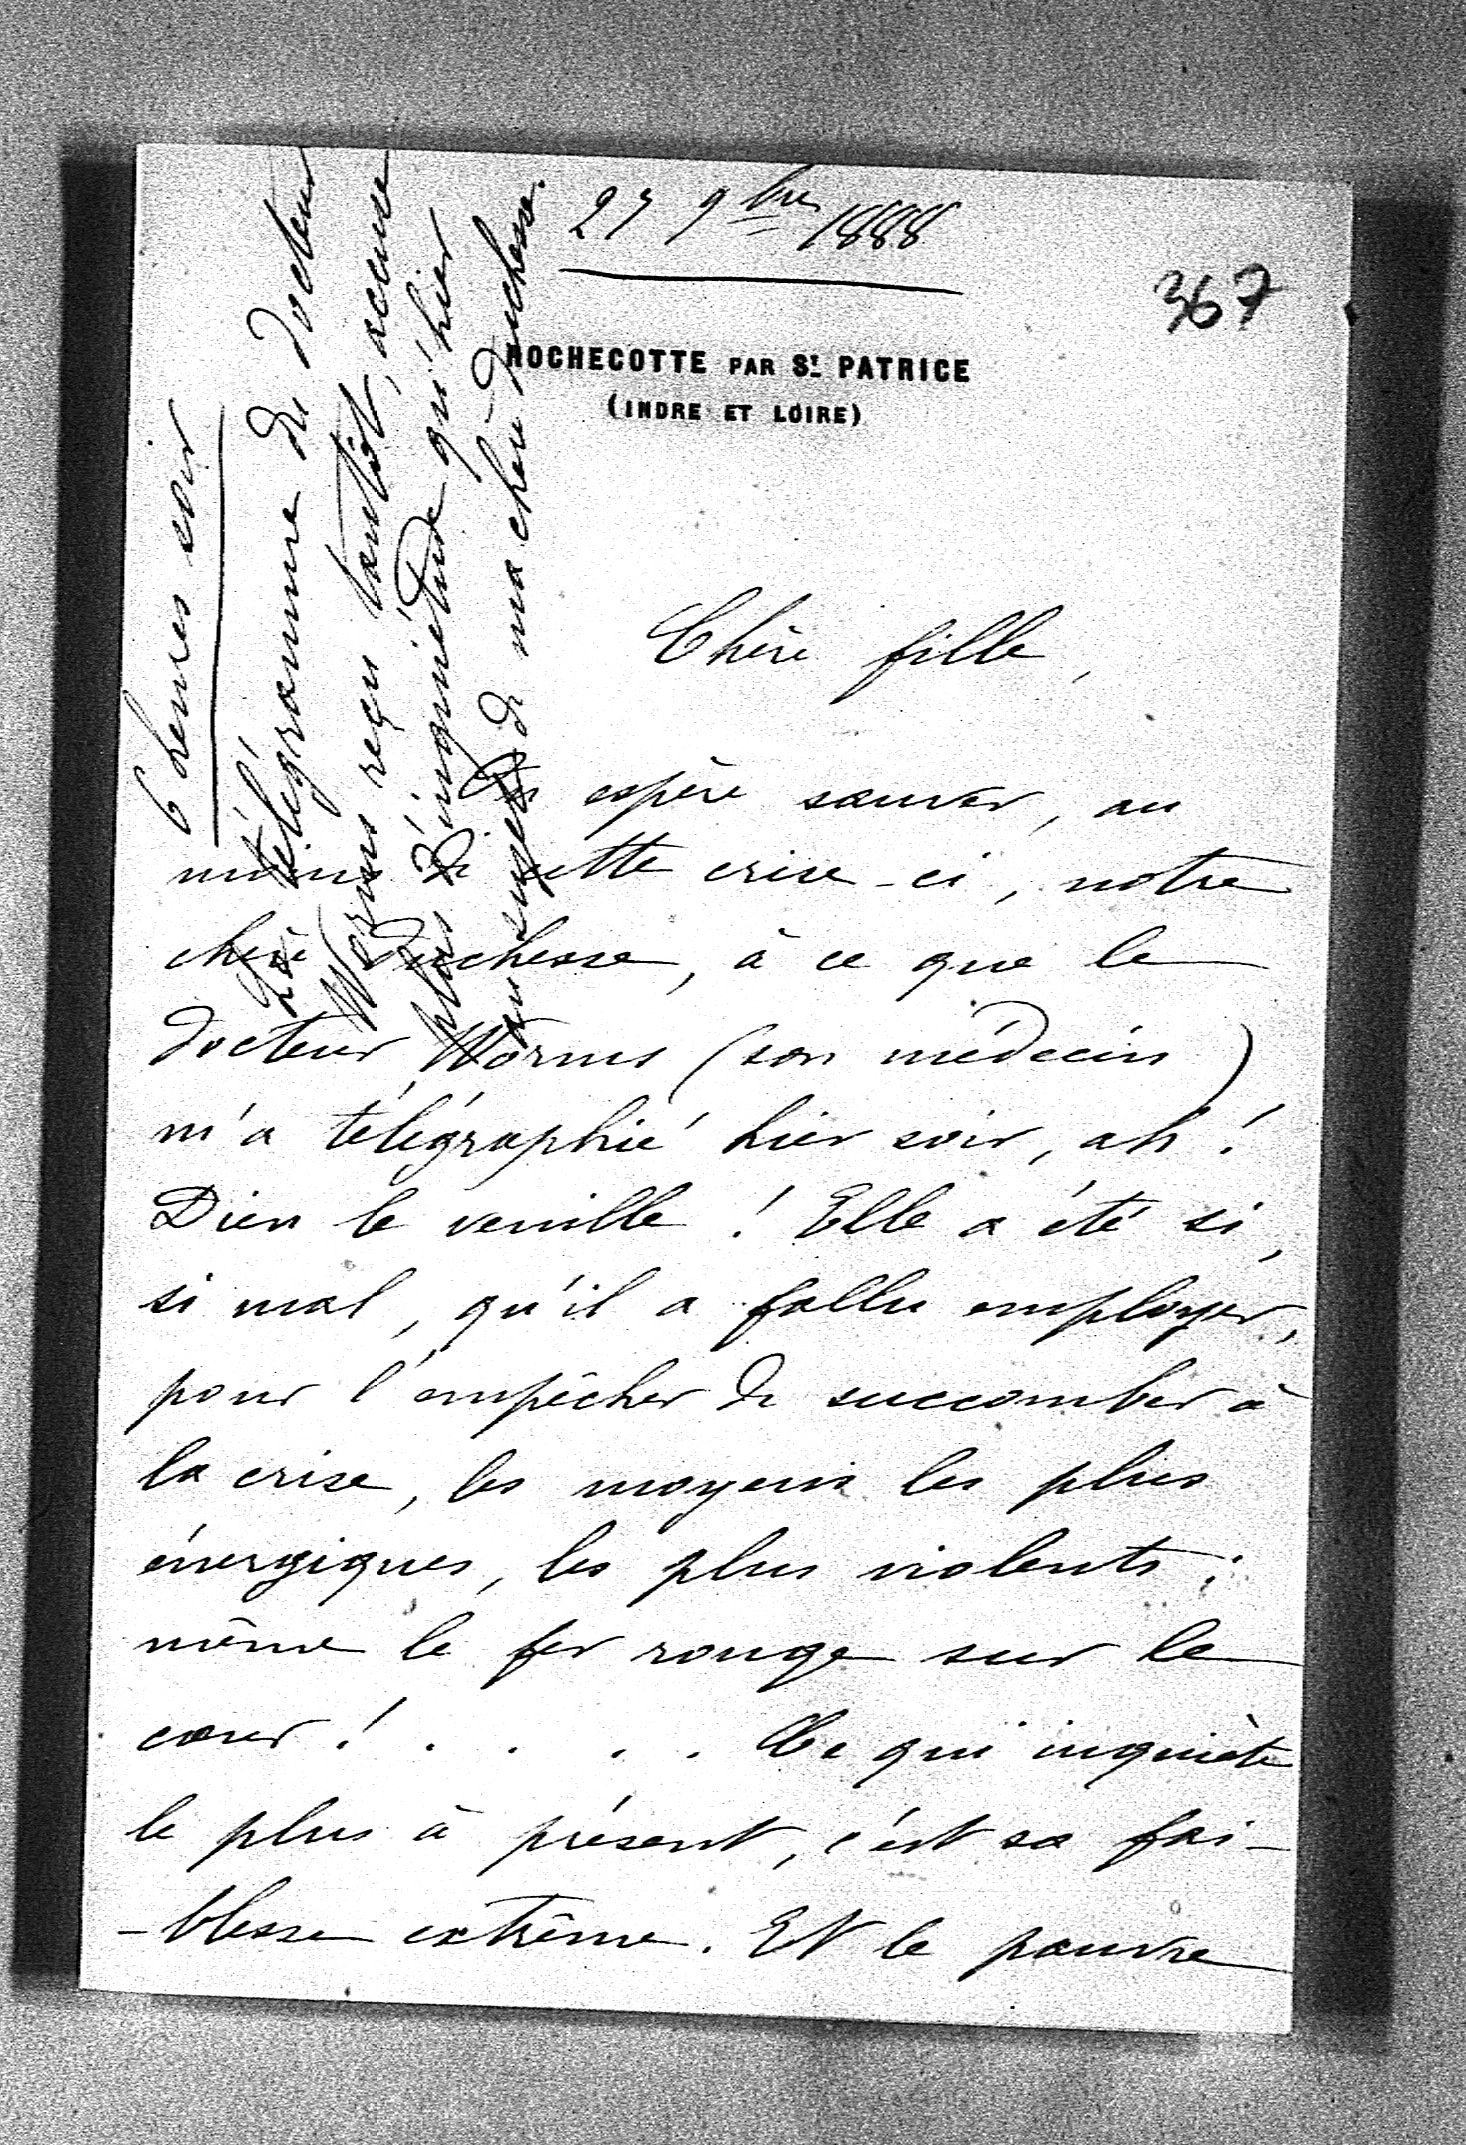 27 9bre 1888
367
ROCHECOTTE PAR ST PATRICE
(INDRE ET LOIRE)
Chère fille,
On espère sauver, au
moins de cette crise-ci, notre
chère Duchesse, à ce que le
docteur Worms (son médecin)
m'a télégraphié hier soir, ah!
Dieu le veuille! Elle a été si,
si mal, qu'il a fallu employer,
pour l'empêcher de succomber à
la crise, les moyens les plus
énergiques, les plus violents;
même le fer rouge sur le
cœur! . . . . Ce qui inquiète
le plus à présent, c'est sa fai-
-blesse extrême. Et le pauvre
6 heures soir
Le télégramme du docteur
Worms reçu tantôt, accuse
plus d'inquiétude qu'hier
au sujet de ma chère Duchesse.